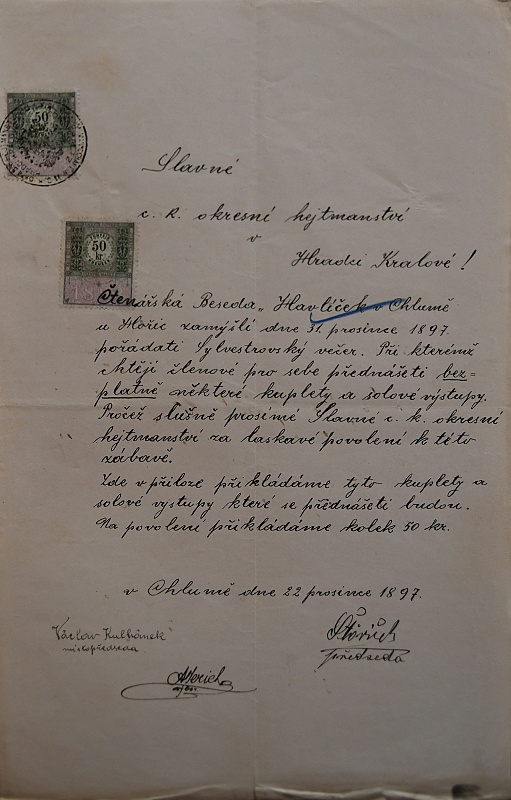 50
Slavné
c. k. okresní hejtmanství
v
Hradci Kralové!
50
kr.
Čtenářská Beseda „Havlíček" v Chlumě
u Hořic zamýšlí dne 31. prosince 1897.
pořádati Sylvestrovský večer. Při kterémž
chtějí členové pro sebe přednášeti bez=
platně některé kuplety a solové výstupy.
Pročež slušně prosíme Slavné c. k. okresní
hejtmanství za laskavé povolení k této
zábavě.
Zde v příloze přikládáme tyto kuplety a
solové výstupy které se přednášeti budou.
Na povolení přikládáme kolek 50 kr.
v Chlumě dne 22 prosince 1897.
Václav
místopředseda
předseda